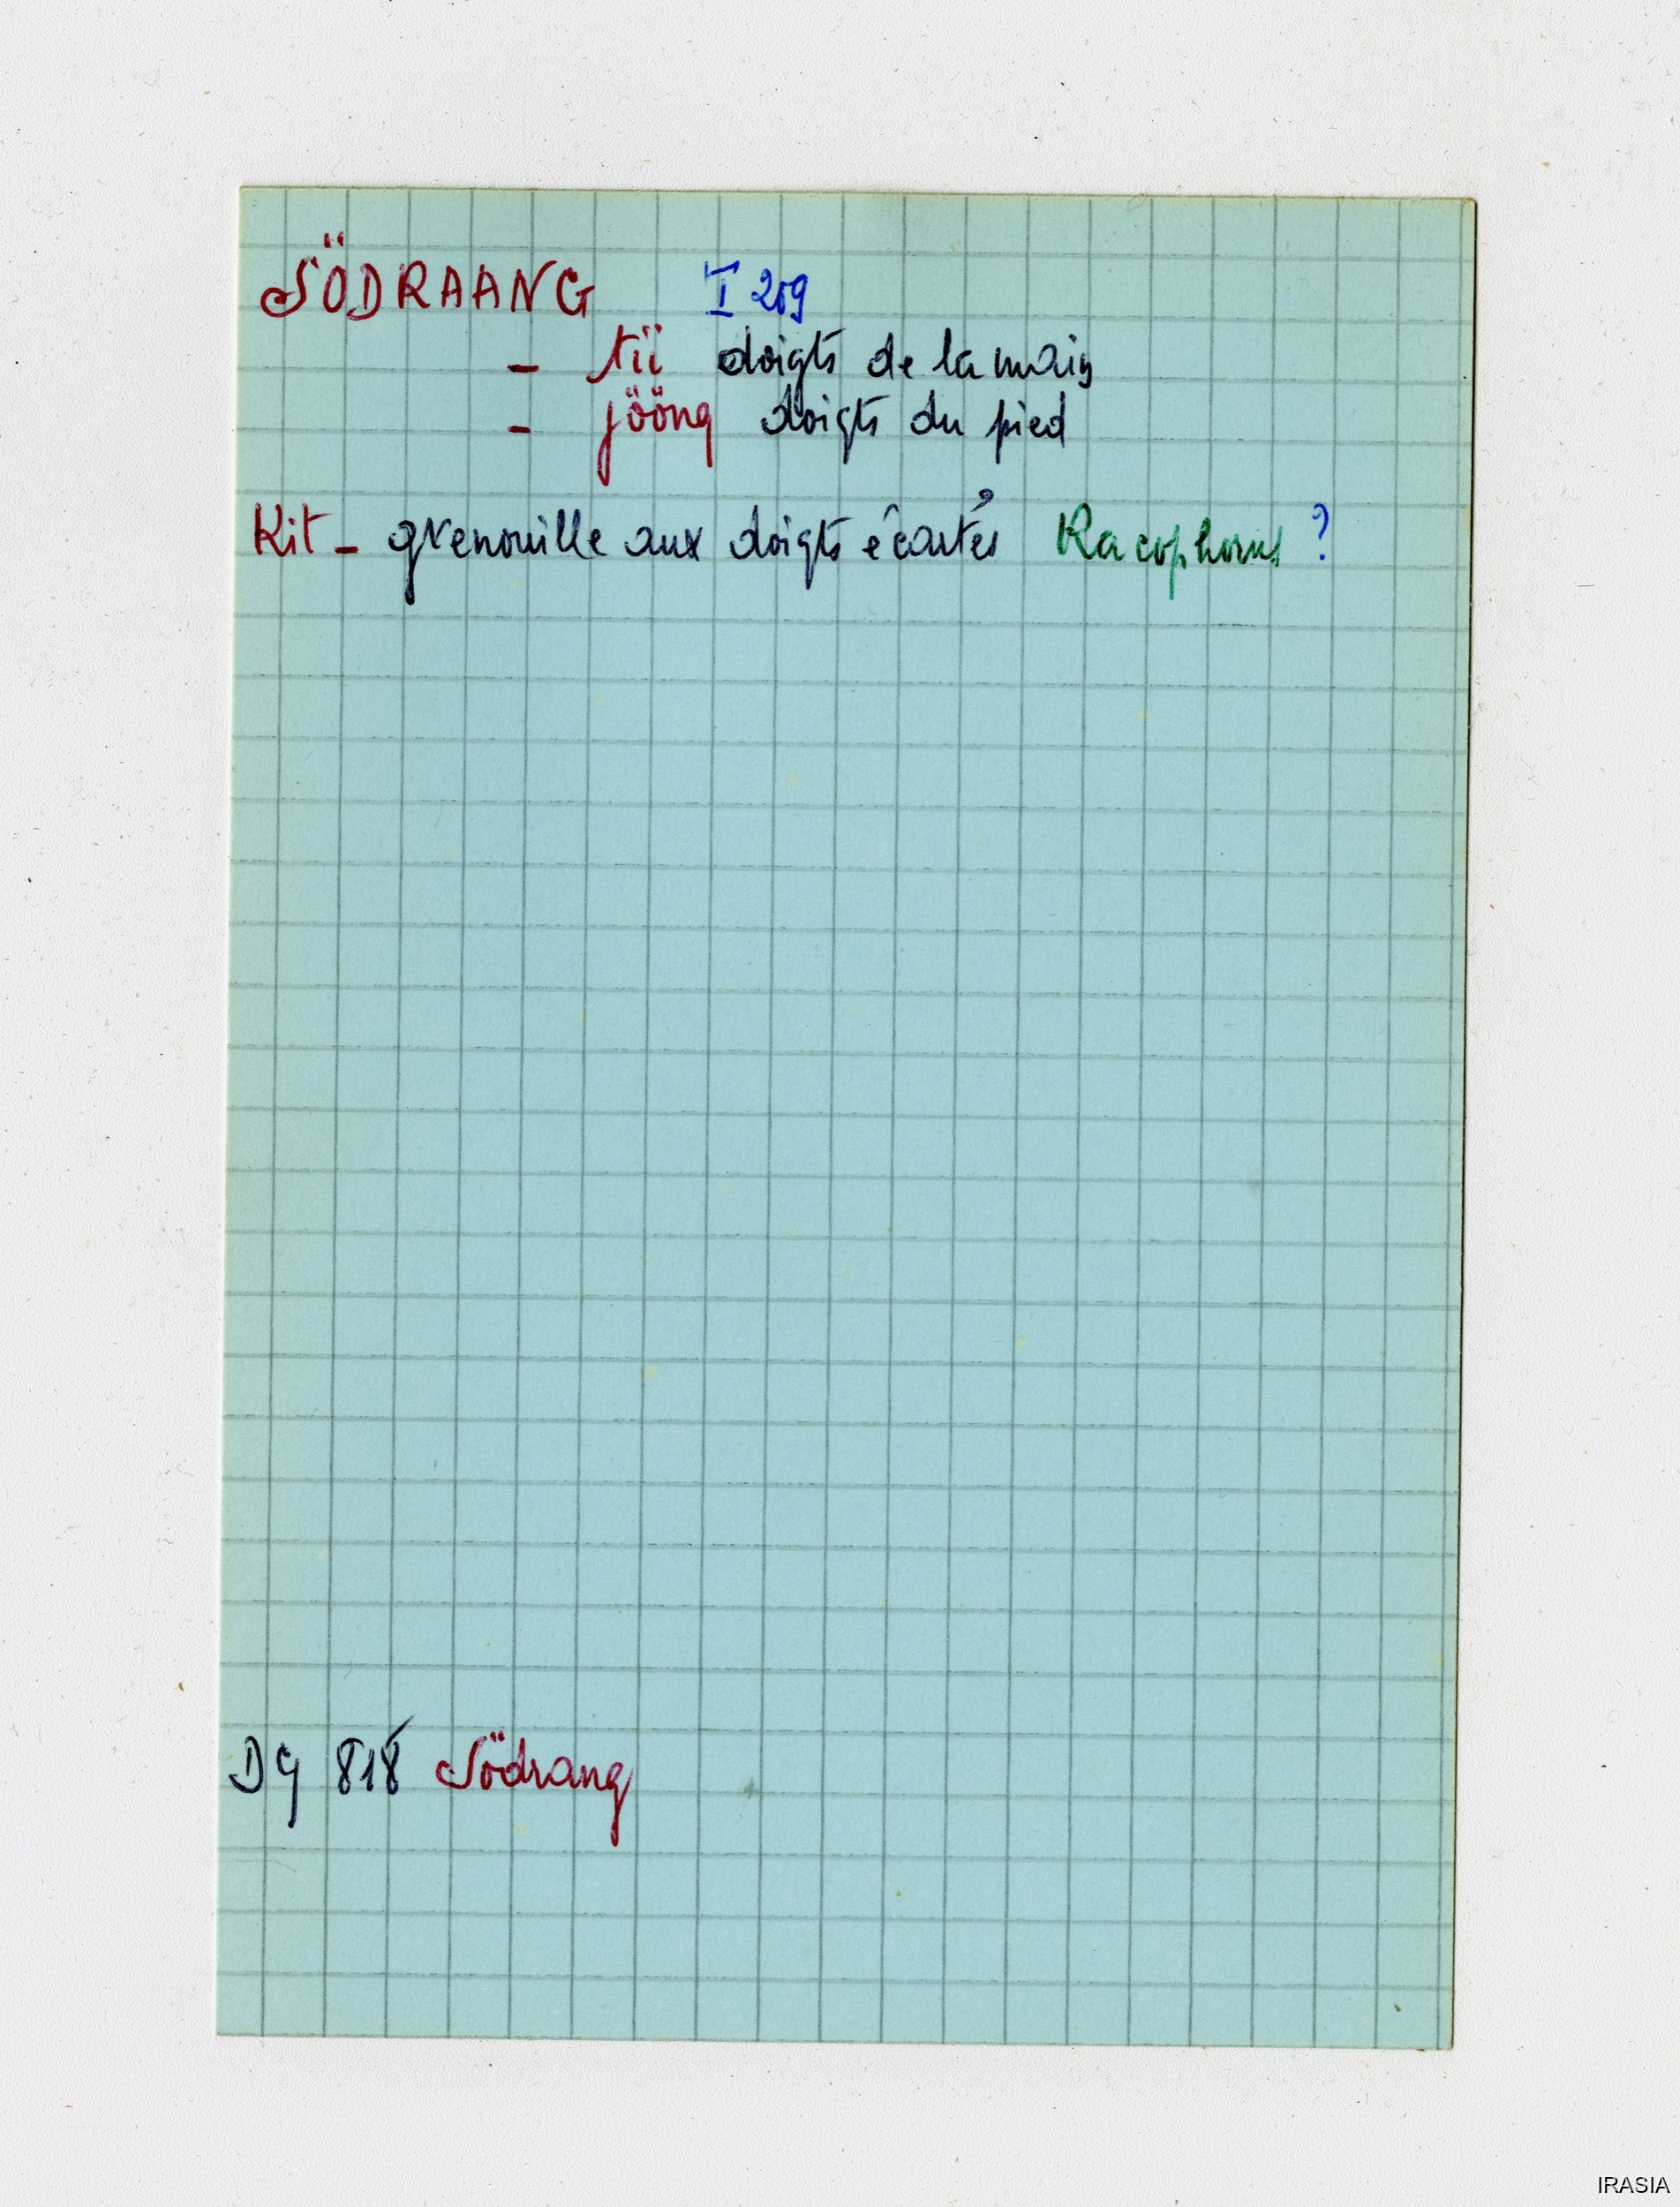 SÖDRAANG I 209
– tii doigts de la main
– jööng doigts du pied
Kit – grenouille aux doigts écartés Racophorus ?
DY 818 Södrang
IRASIA